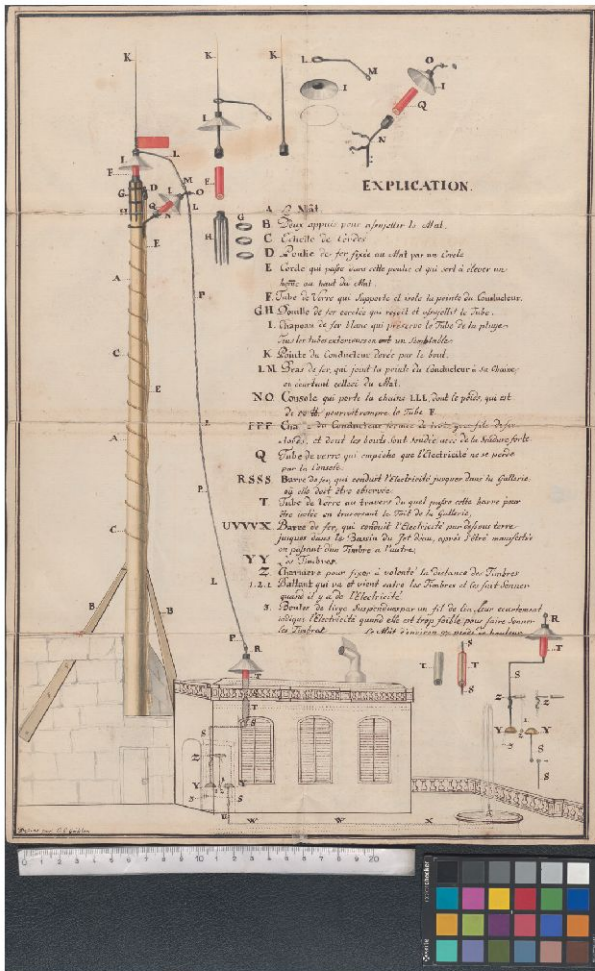 EXPLICATION.
A Le Mât.
B Deux appuis pour assujettir le Mat.
C Echelle de Cordes
D Poulie de fer fixée au Mat par un Cercle
E Corde qui passe dans cette poulie et qui sert à elever un
homme au haut du Mat.
F Tube de Verre qui supporte et isole la pointe du Conducteur.
GH Douille de fer qui reçoit et assujettit le Tube.
I. Chapeau de fer blanc qui préserve le Tube de la pluye
Tous les tubes exterieurs en ont un semblable
K Pointe du Conducteur dorée par le bout.
LM Bras de fer, qui joint la pointe du Conducteur à sa Chaine,
en écartant celleci du Mat.
NO Console qui porte la chaine LLL, dont le poids, qui est
de romproit le Tube F
PPP du Conducteur fils de fer
et dont les bouts sont soudés avec de la Soudure forte
Q Tube de verre qui empêche que l'Electricité ne se perde
par la Console.
RSSS Barre de fer, qui conduit l'Electricité jusques dans la Gallerie
où elle doit être observée
T Tube de Verre au travers du quel passe cette barre pour
être isolée en traversant le Toit de la Gallerie,
UVVVX Barre de fer, qui conduit l'Electricité par dessous terre
jusques dans le Bassin du Jet d'eau, après s'être manifestée
en passant d'un Timbre à l'autre,
YY Les Timbres.
Z Charniere pour fixer à volonté la distance des Timbres
1.2.1. Battant qui va et vient entre les Timbres et les fait Sonner
quand il y a de l'Electricité
3. Boules de liege Suspendues par un fil de lin, leur ecartement
indique l'Electricité quand elle est trop foible pour faire Sonner
les Timbres. Le Mât d'environ 90 pieds de hauteur